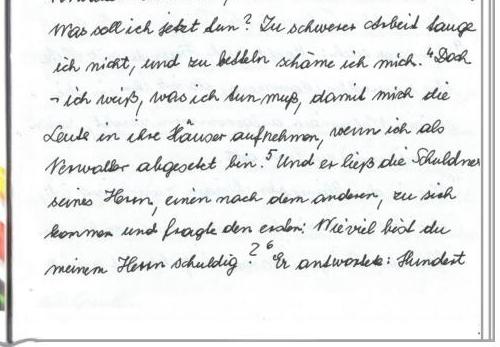 Was soll ich jetzt tun? Zu schwerer Arbeit tauge
ich nicht, und zu betteln schäme ich mich. 4 Doch
- ich weiß, was ich tun muß, damit mich die
Leute in ihre Häuser aufnehmen, wenn ich als
Verwalter abgesetzt bin. 5 Und er ließ die Schuldner
seines Herrn, einen nach dem anderen, zu sich
kommen und fragte den ersten: Wieviel bist du
meinem Herrn schuldig? 6 Er antwortete: Hundert